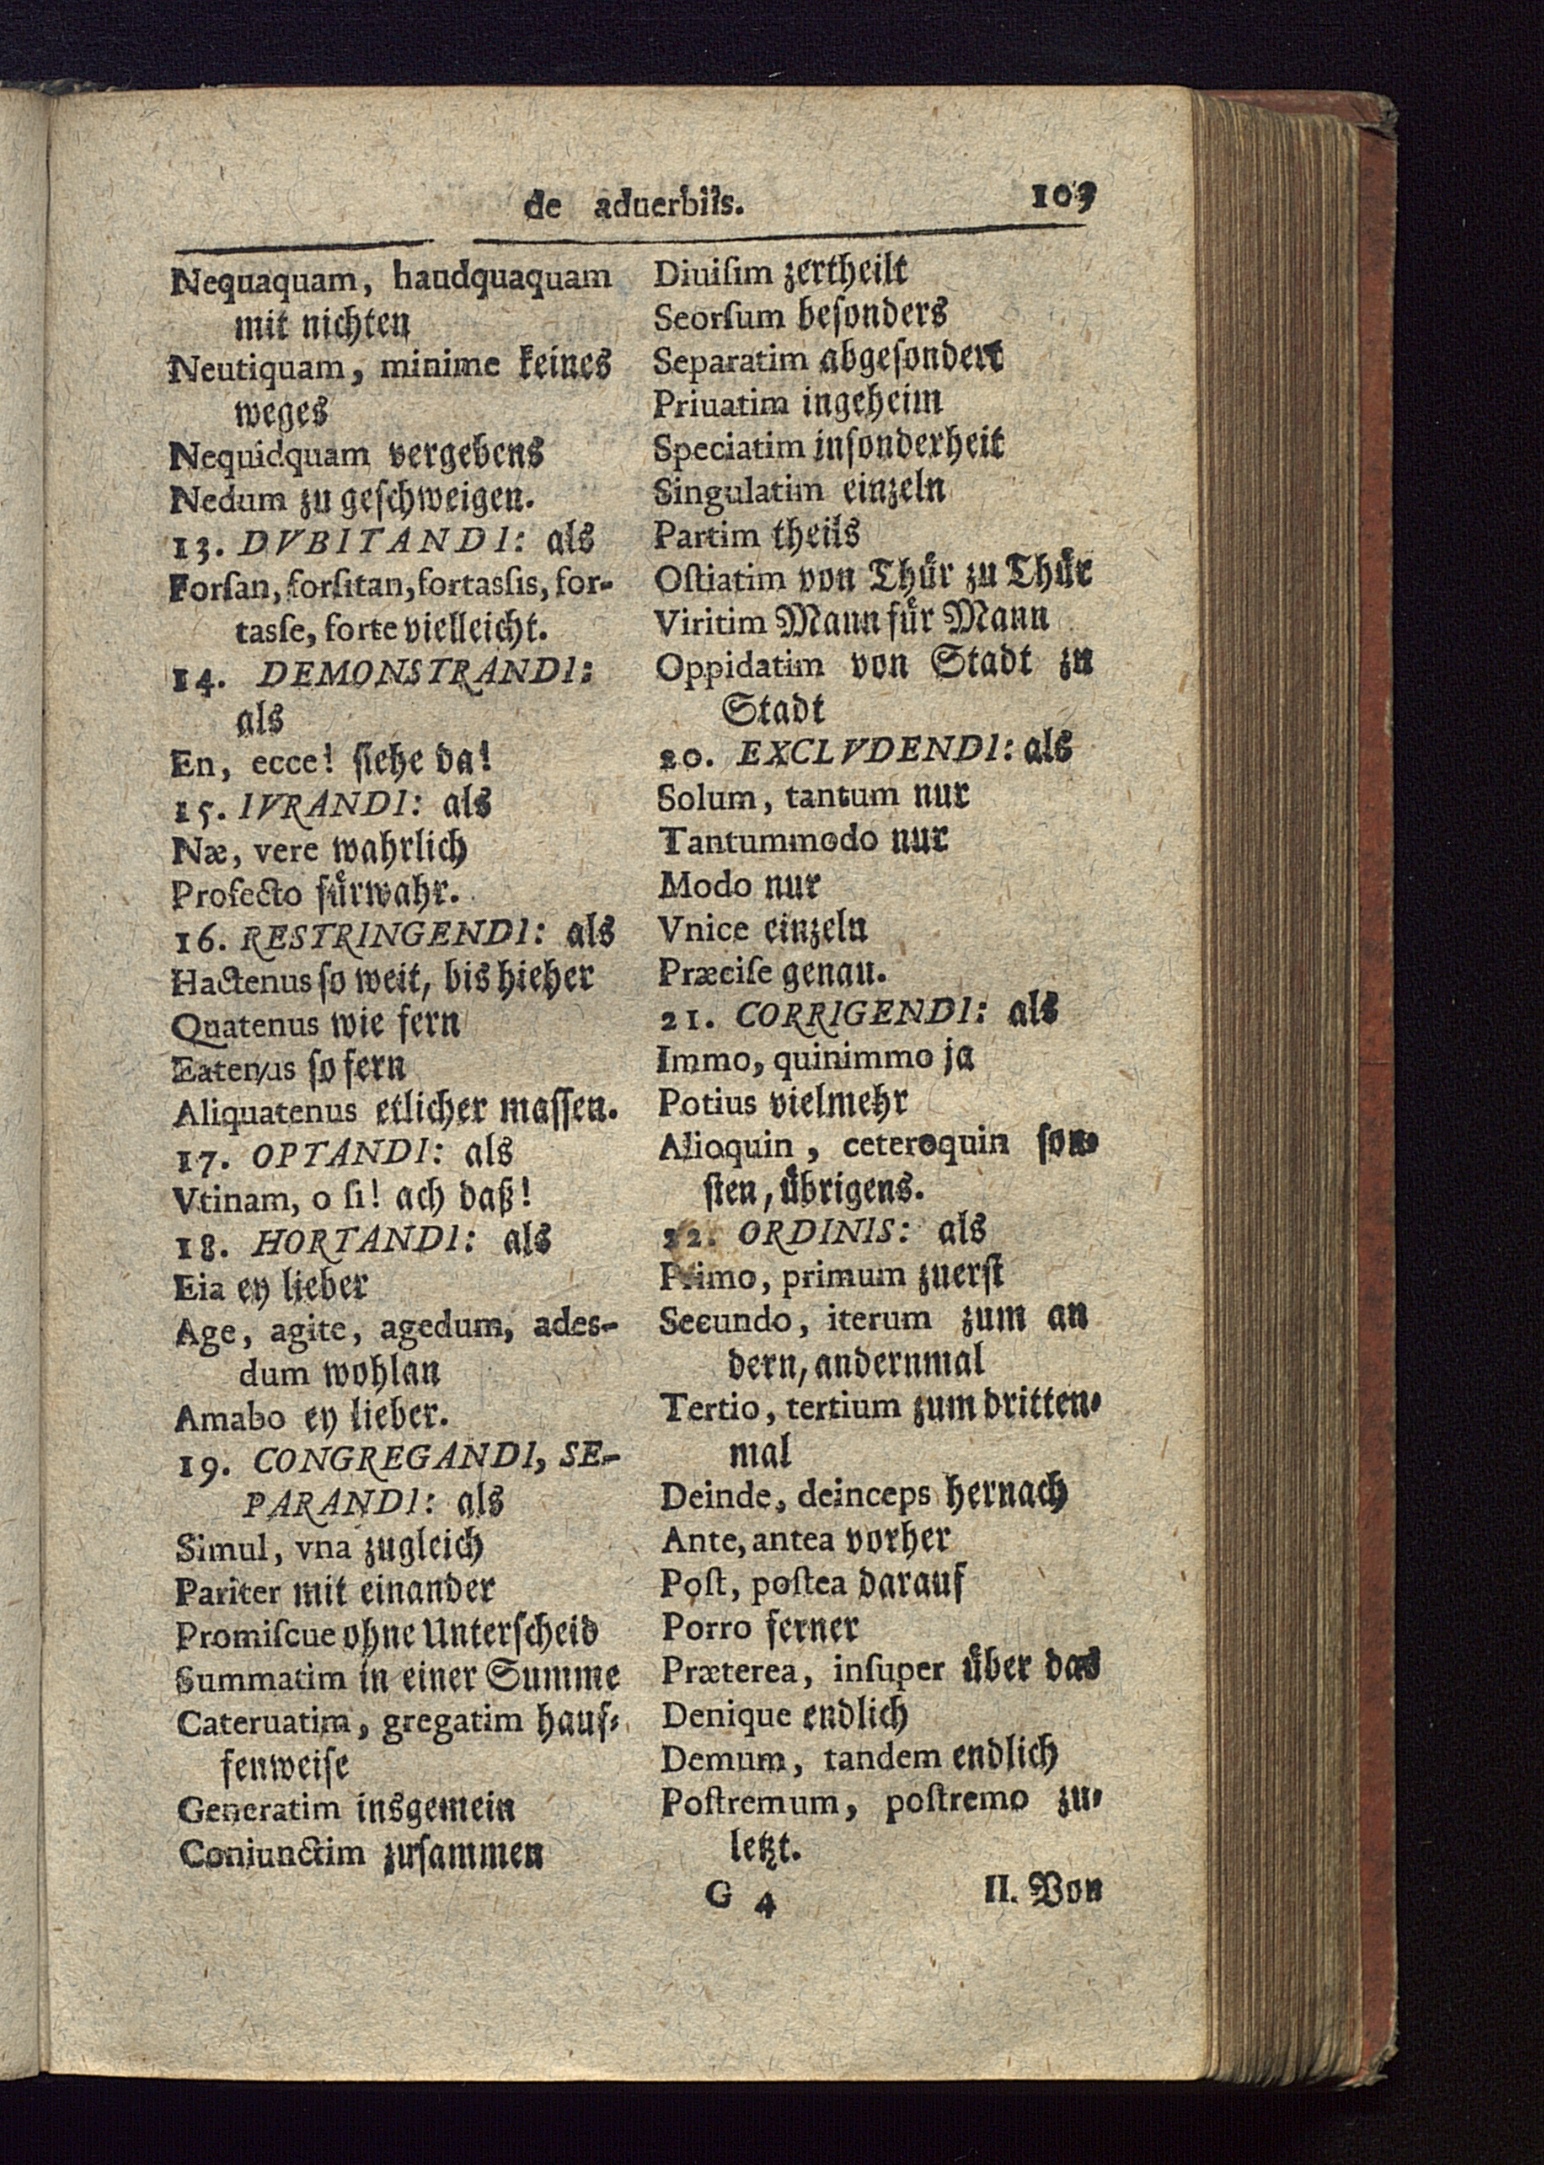 de aduerbiis.
103
Nequaquam, haudquaquam
mit nichten
Neutiquam, minime keines
weges
Nequidquam vergebens
Nedum zu geſchweigen.
13. DVBITANDI: als
Forſan, forſitan, fortasſis, for-
tasſe, forte vielleicht.
14. DEMONSTRANDI:
als
En, ecce! ſiehe da!
15. IVRANDI: als
Næ, vere wahrlich
Profecto fuͤrwahr.
16. RESTRINGENDI: als
Hactenus ſo weit, bis hieher
Quatenus wie fern
Eatenus ſo fern
Aliquatenus etlicher maſſen.
17. OPTANDI: als
Vtinam, o ſi! ach daß!
18. HORTANDI: als
Eia ey lieber
Age, agite, agedum, ades-
dum wohlan
Amabo ey lieber.
19. CONGREGANDI, SE-
PARANDI: als
Simul, vna zugleich
Pariter mit einander
Promiſcue ohne Unterſcheid
Summatim in einer Summe
Cateruatim, gregatim hauf-
fenweiſe
Generatim insgemein
Coniunctim zuſammen
Diuiſim zertheilt
Seorſum beſonders
Separatim abgeſondert
Priuatim ingeheim
Speciatim inſonderheit
Singulatim einzeln
Partim theils
Oſtiatim von Thuͤr zu Thuͤr
Viritim Mann fuͤr Mann
Oppidatim von Stadt zu
Stadt
20. EXCLVDENDI: als
Solum, tantum nur
Tantummodo nur
Modo nur
Vnice einzeln
Præciſe genau.
21. CORRIGENDI: als
Immo, quinimmo ja
Potius vielmehr
Alioquin, ceteroquin ſon-
ſten, uͤbrigens.
22. ORDINIS: als
Primo, primum zuerſt
Secundo, iterum zum an
dern, andernmal
Tertio, tertium zum dritten-
mal
Deinde, deinceps hernach
Ante, antea vorher
Poſt, poſtea darauf
Porro ferner
Præterea, inſuper uͤber das
Denique endlich
Demum, tandem endlich
Poſtremum, poſtremo zu-
letzt.
G 4
II. Von